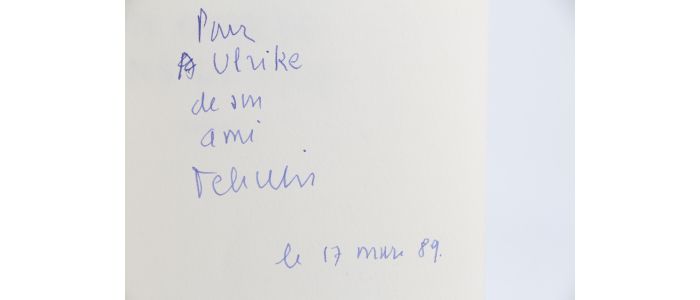 Pour
Ulrike
de son
ami
le 17 mars 89.